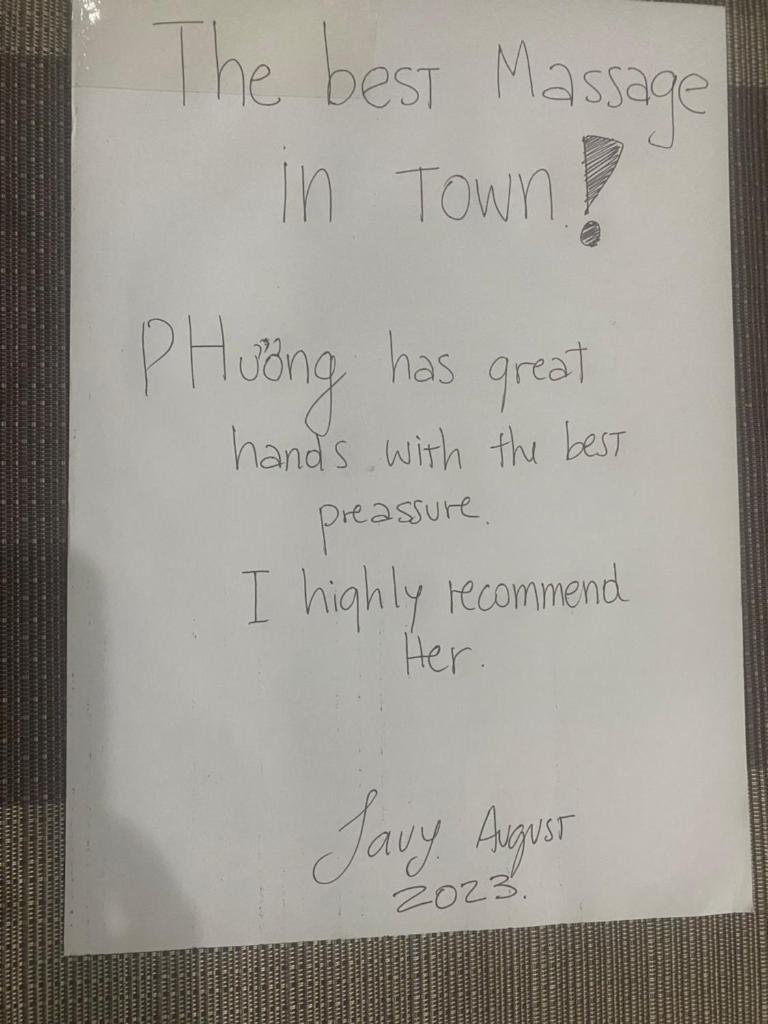 The best Massage
in Town!
PHương has great
hands with the best
preassure.
I highly recommend
Her.
Javy August
2023.